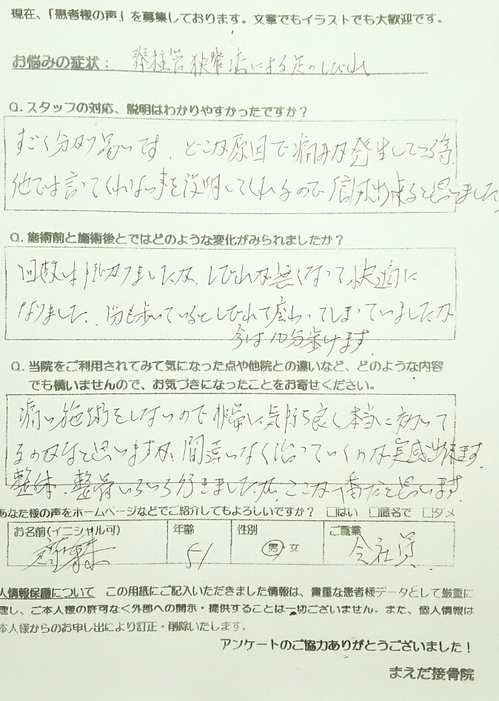 現在、「患者様の声」を募集しております。文章でもイラストでも大歓迎です。
お悩みの症状： 脊柱管狭窄症による足のしびれ
Q. スタッフの対応、説明はわかりやすかったですか？
すごく分かり易いです。どこが原因で痛みが発生してる等
他では言ってくれない事を説明してくれるので信用出来ると思いました
Q. 施術前と施術後とではどのような変化がみられましたか？
回数は かかりましたが、しびれが無くなって快適に
なりました。1分も歩いているとしびれて座ってしまっていましたが
今は10分歩けます
Q. 当院をご利用されてみて気になった点や他院との違いなど、どのような内容
でも構いませんので、お気づきになったことをお寄せください。
痛い施術をしないので非常に気持ち良く本当に効いて
るのかなと思いますが、間違いなく治っていくのが実感出来ます。
整体、整骨いろいろ行きましたが、ここが一番だと思います
あなた様の声をホームページなどでご紹介してもよろしいですか？ □はい □匿名で □ダメ
お名前(イニシャル可) 年齢 性別 ご職業
51 男 女 会社員
人情報保護について この用紙にご記入いただきました情報は、貴重な患者様データとして厳重に
理し、ご本人様の許可なく外部への開示・提供することは一切ございません。また、個人情報は
本人様からのお申し出により訂正・削除いたします。
アンケートのご協力ありがとうございました！
まえだ接骨院